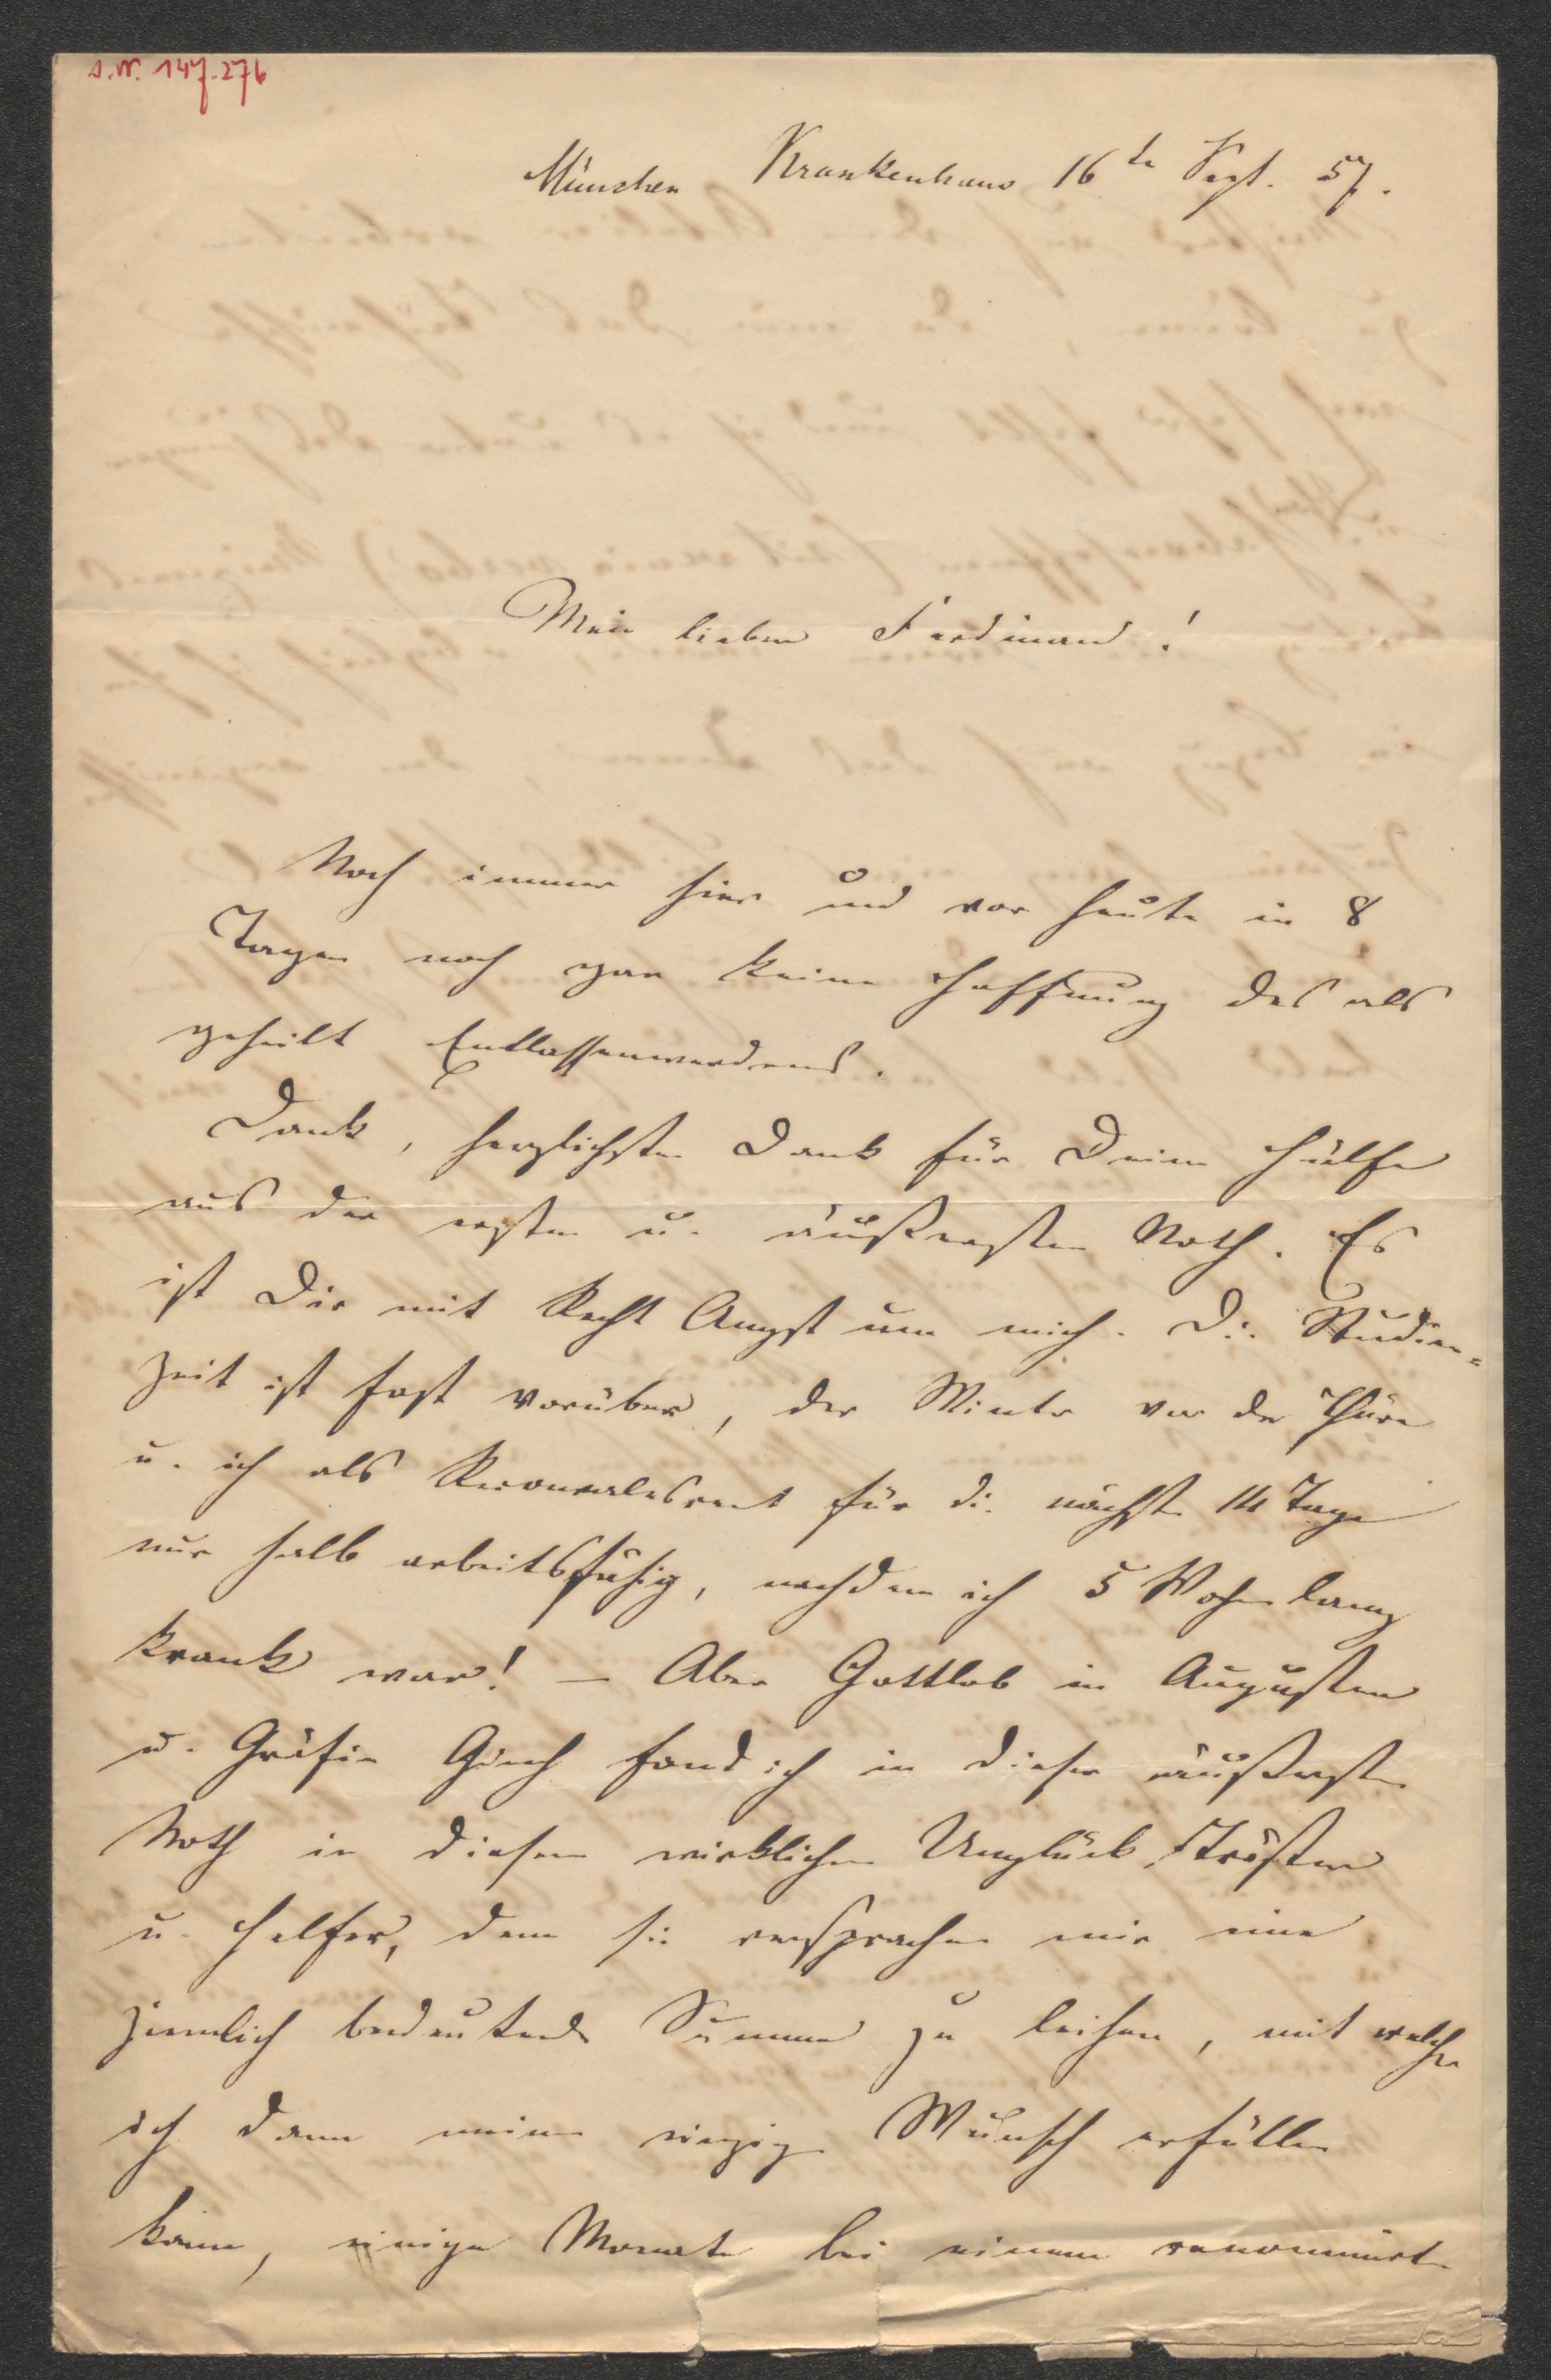 S. N. 147.276
München Krankenhaus 16te Sept. 57.
Mein lieber Ferdinand!
Noch immer hier und vor heute in 8
Tagen noch gar keine Hoffnung des als
geheilt Entlassenwerdens.
Dank, herzlichsten Dank für Deine Hülfe
aus der ersten u. äußersten Noth. Es
ist Dir mit Recht Angst um mich. Die Studien-
zeit ist fast vorüber, der Winter vor der Thüre
u. ich als Reconvalescent für die nächsten 14 Tage
nur halb arbeitsfähig, nachdem ich 5 Wochen lang
krank war! – Aber Gottlob in Augusten
u. Gräfin fand ich in dieser äußersten
Noth in diesem wirklichen Unglück Tröster
u. Helfer, denn sie versprachen mir eine
ziemlich bedeutende Summe zu leihen, mit welcher
ich dann meinen einzigen Wunsch erfüllen
kann, einige Monate bei einem renommirten